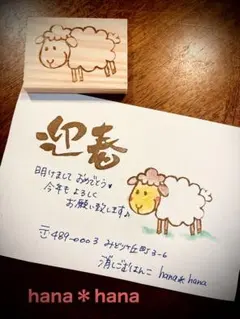 迎春
明けまして おめでとう♥
今年も よろしく
お願い致します♪
〒489-0003 みどりヶ丘町3-6
消しごむはんこ hana*hana
hana*hana